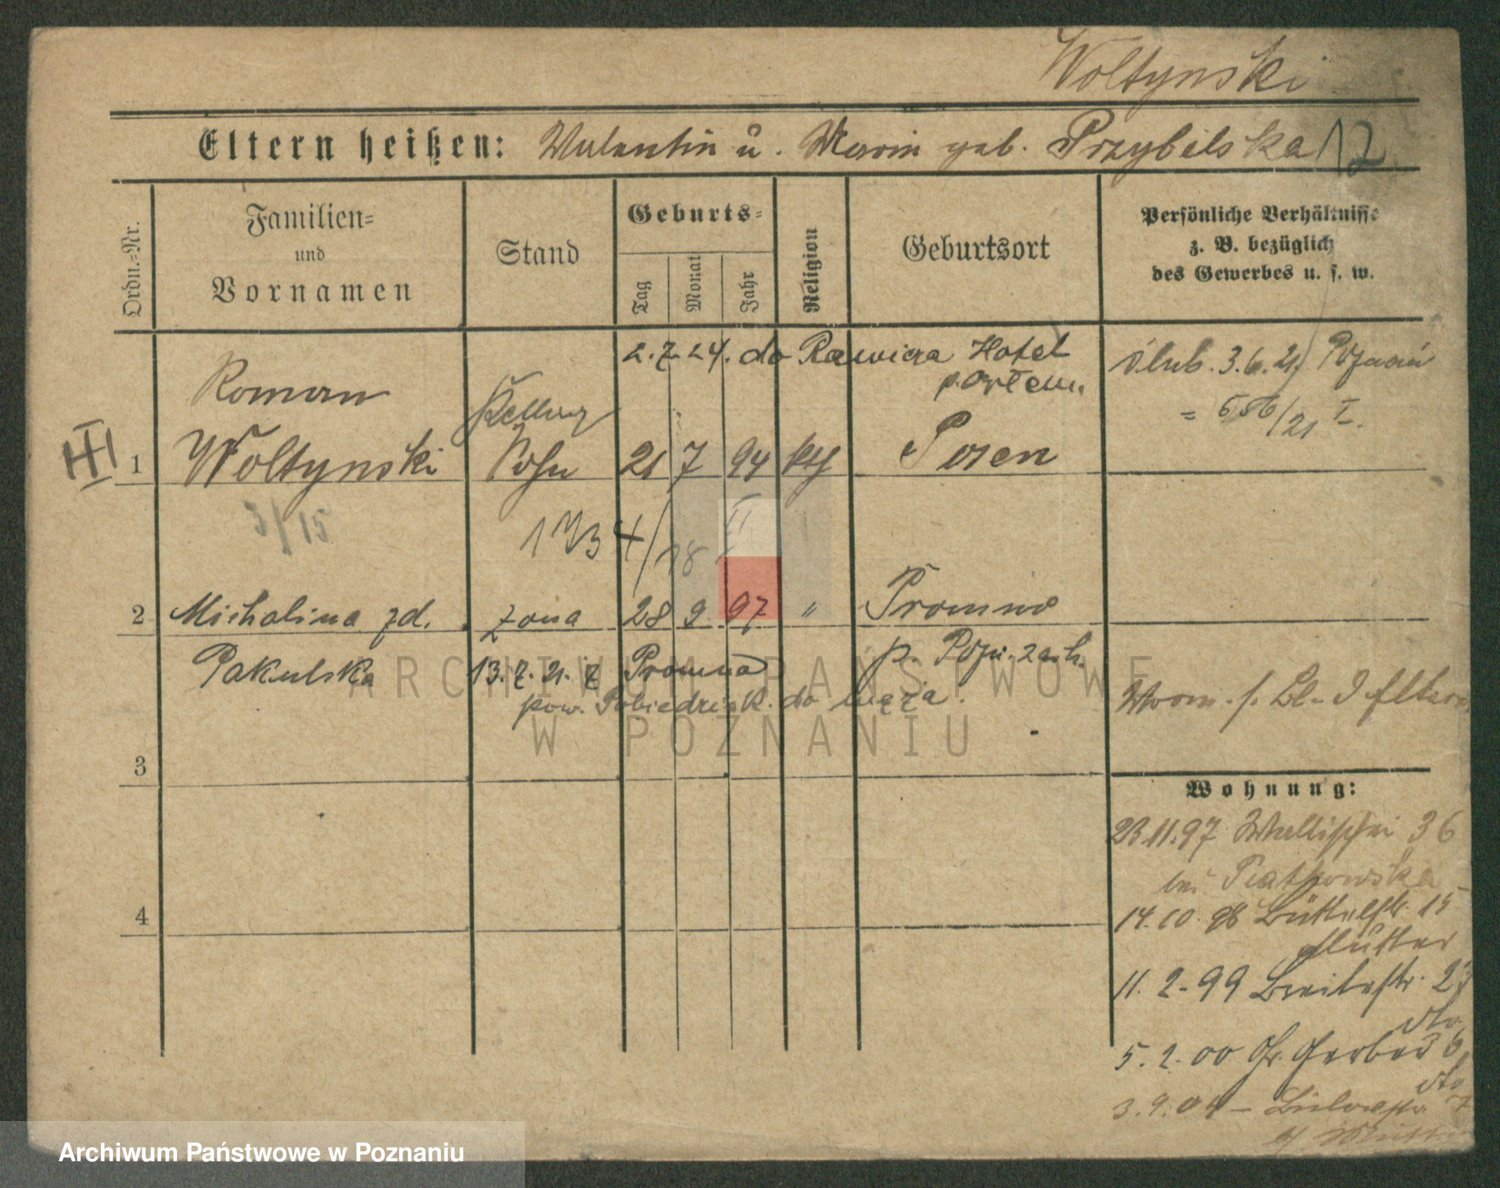 Woltynski
Eltern heißen: Valentin u. Maria geb. Przybilska 12
Ordn.-Nr.
Familien-
und
Vornamen
Stand
Geburts-
Tag
Monat
Jahr
Religion
Geburtsort
Persönliche Verhältnisse
z. B. bezüglich
des Gewerbes u. s. w.
2. 7. 24. do Rawicza Hotel
p. Orłem.
ślub. 3.6.21 Poznań
= 556/21 I.
Roman
Kellner
III 1 Woltynski Sohn 21 7 94 kth Posen
3/15
1734/18 II
2 Michalina zd. żona 28 9 97 " Promno
Pakulska 13. 7. 21. z Promna p. Pozn. zach.
pow. Pobiedzisk. do męża.
3
Wohnung:
23.11.97 Wallischei 36
bei Piatkowska
4
14.10.98 Büttelstr. 15
Mutter
11. 2. 99 Breitestr. 27
dto
5. 2. 00 Gr. Gerber 6
dto
3. 9. 04 -
ARCHIWUM PAŃSTWOWE
W POZNANIU
Archiwum Państwowe w Poznaniu